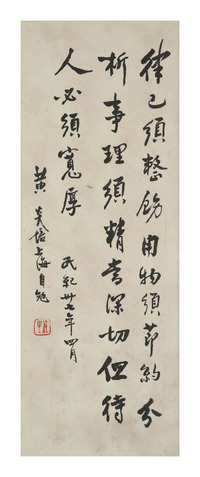 律己須整飭用物須節約分
析事理須精深切但待
人必須寬厚
民紀卅七年四月
黃炎培上海自勉